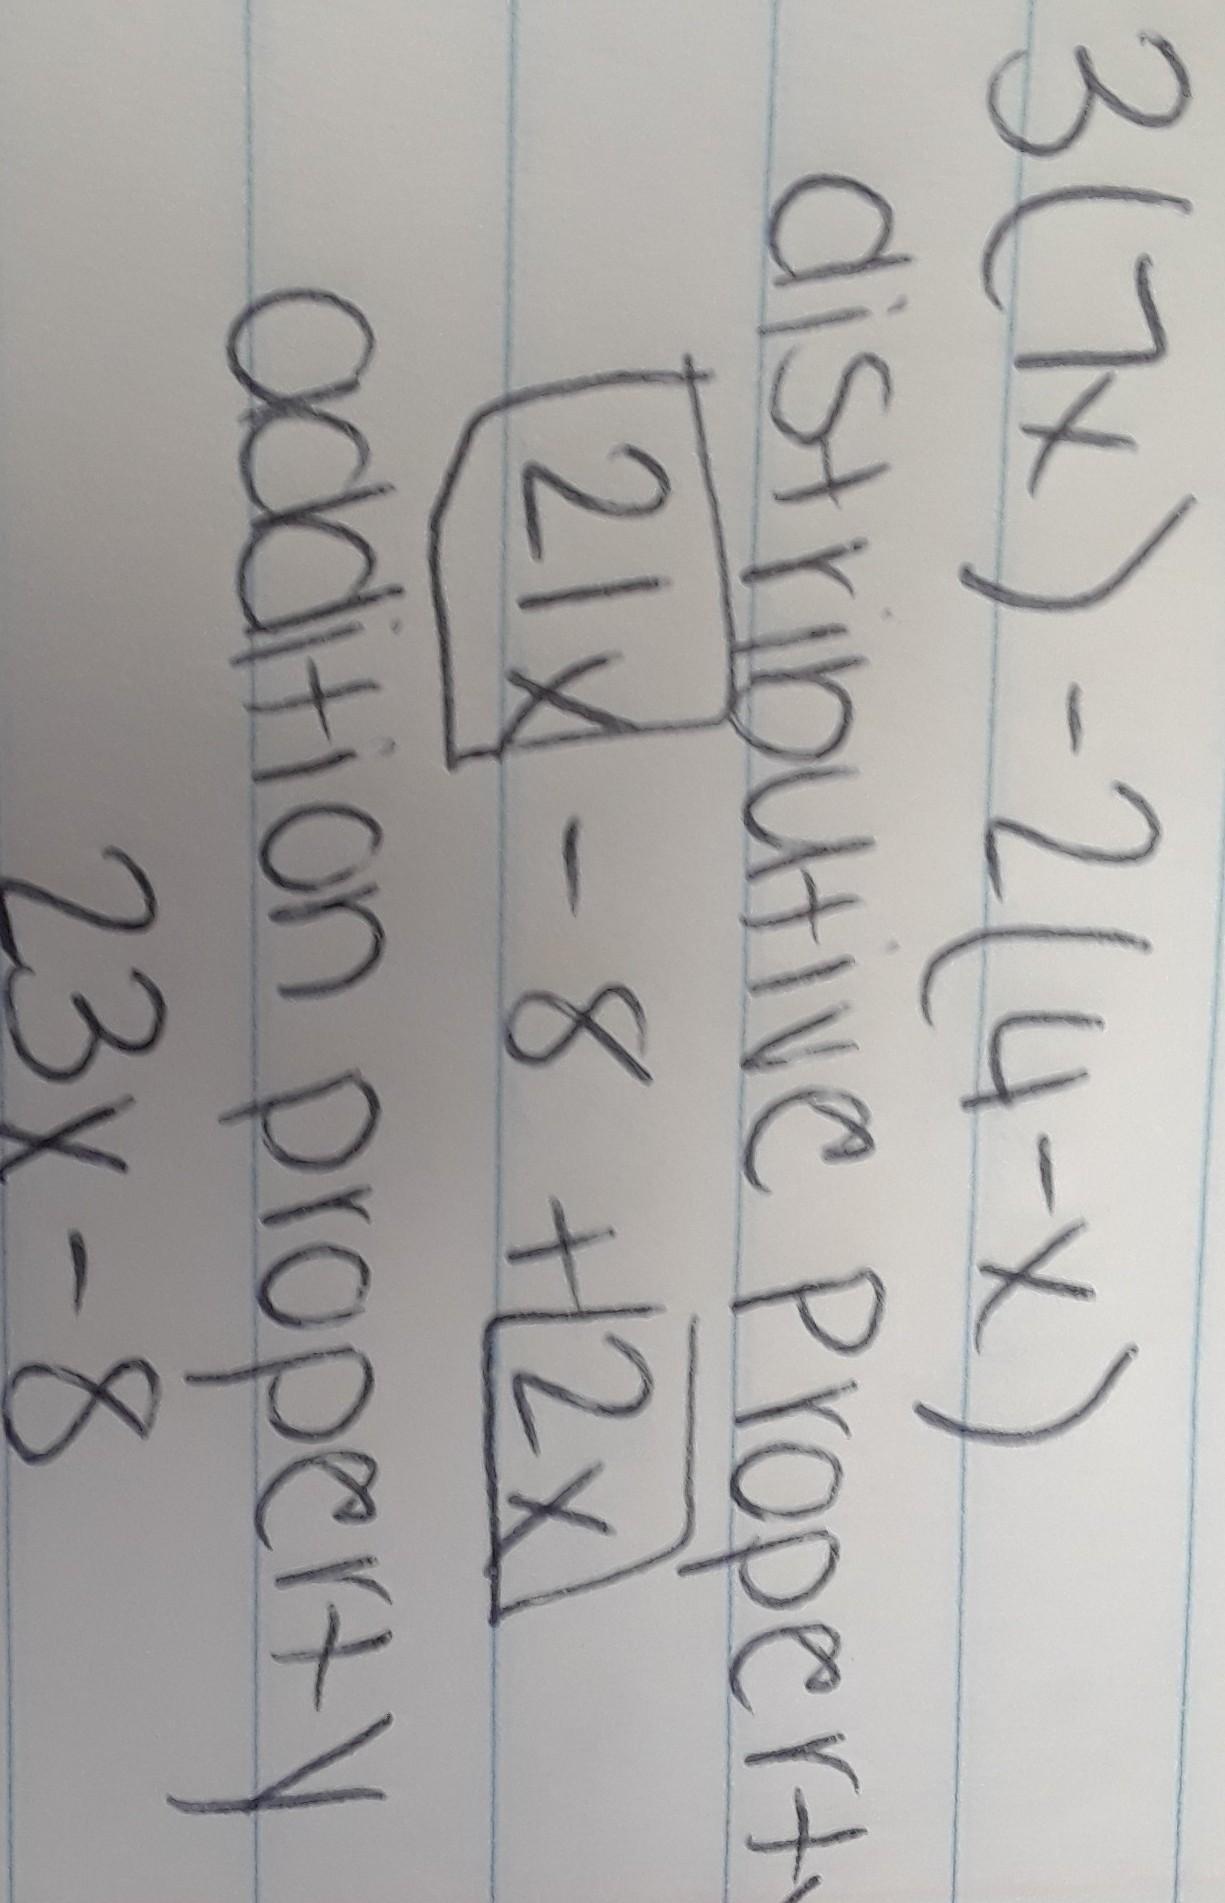 3(7x) - 2(4-x)
distributive property
21x - 8 + 2x
addition property
23x - 8